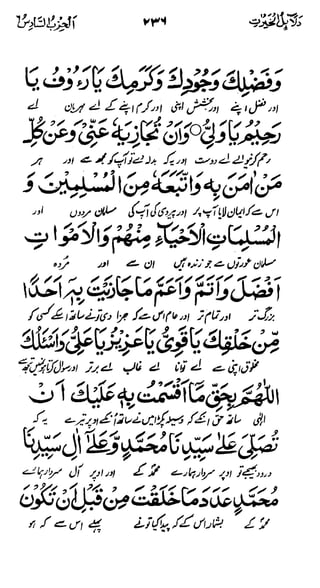 دلائل الخیرات ۲۳۶ الحزب السادس
وَفَضْلِكَ وَجُوْدِكَ وَكَرَمِكَ يَا رَءُوْفُ يَا
اور فضل اپنے اور بخشش اپنی اور کرم اپنے کے اے مہربان اے
رَحِيْمُ يَا وَلِيُّ ○ وَاَنْ تُجَازِيَهٗ عَنِّيْ وَعَنْ كُلِّ
رحم کرنیوالے اے دوست اور یہ کہ بدلہ دے تو آپ کو مجھ سے اور ہر
مَنْ اٰمَنَ بِهٖ وَاتَّبَعَهٗ مِنَ الْمُسْلِمِيْنَ وَ
اس سے کہ ایمان لایا آپ پر اور پیروی کی آپ کی مسلمان مردوں اور
الْمُسْلِمَاتِ الْاَحْيَاءِ مِنْهُمْ وَالْاَمْوَاتِ
مسلمان عورتوں سے جو زندہ ہیں ان سے اور مردہ
اَفْضَلَ وَاَتَمَّ وَاَعَمَّ مَا جَازَيْتَ بِهٖٓ اَحَدًا
بزرگ تر اور تمام تر اور عام اس سے کہ جزا دی تونے ساتھ اسکے کسی کو
مِّنْ خَلْقِكَ يَا قَوِيُّ يَا عَزِيْزُ يَا عَلِيُّ وَاَسْئَلُكَ
مخلوق اپنی سے اے توانا اے غالب اے برتر اور سوال کرتا ہوں میں تجھ سے
اللّٰهُمَّ بِحَقِّ مَآ اَقْسَمْتُ بِهٖ عَلَيْكَ اَنْ
الٰہی ساتھ حق اسکے کہ وسیلہ پکڑا میں نے ساتھ اسکے اوپر تیرے یہ کہ
تُصَلِّيَ عَلٰى سَيِّدِنَا مُحَمَّدٍ وَّعَلٰٓى اٰلِ سَيِّدِنَا
درود بھیجے تو اوپر سردار ہمارے محمدؐ کے اور اوپر آل سردار ہمارے
مُحَمَّدٍ عَدَدَ مَا خَلَقْتَ مِنْ قَبْلِ اَنْ تَكُوْنَ
محمدؐ کے بشمار اس کے کہ پیدا کیا تونے پہلے اس سے کہ ہو